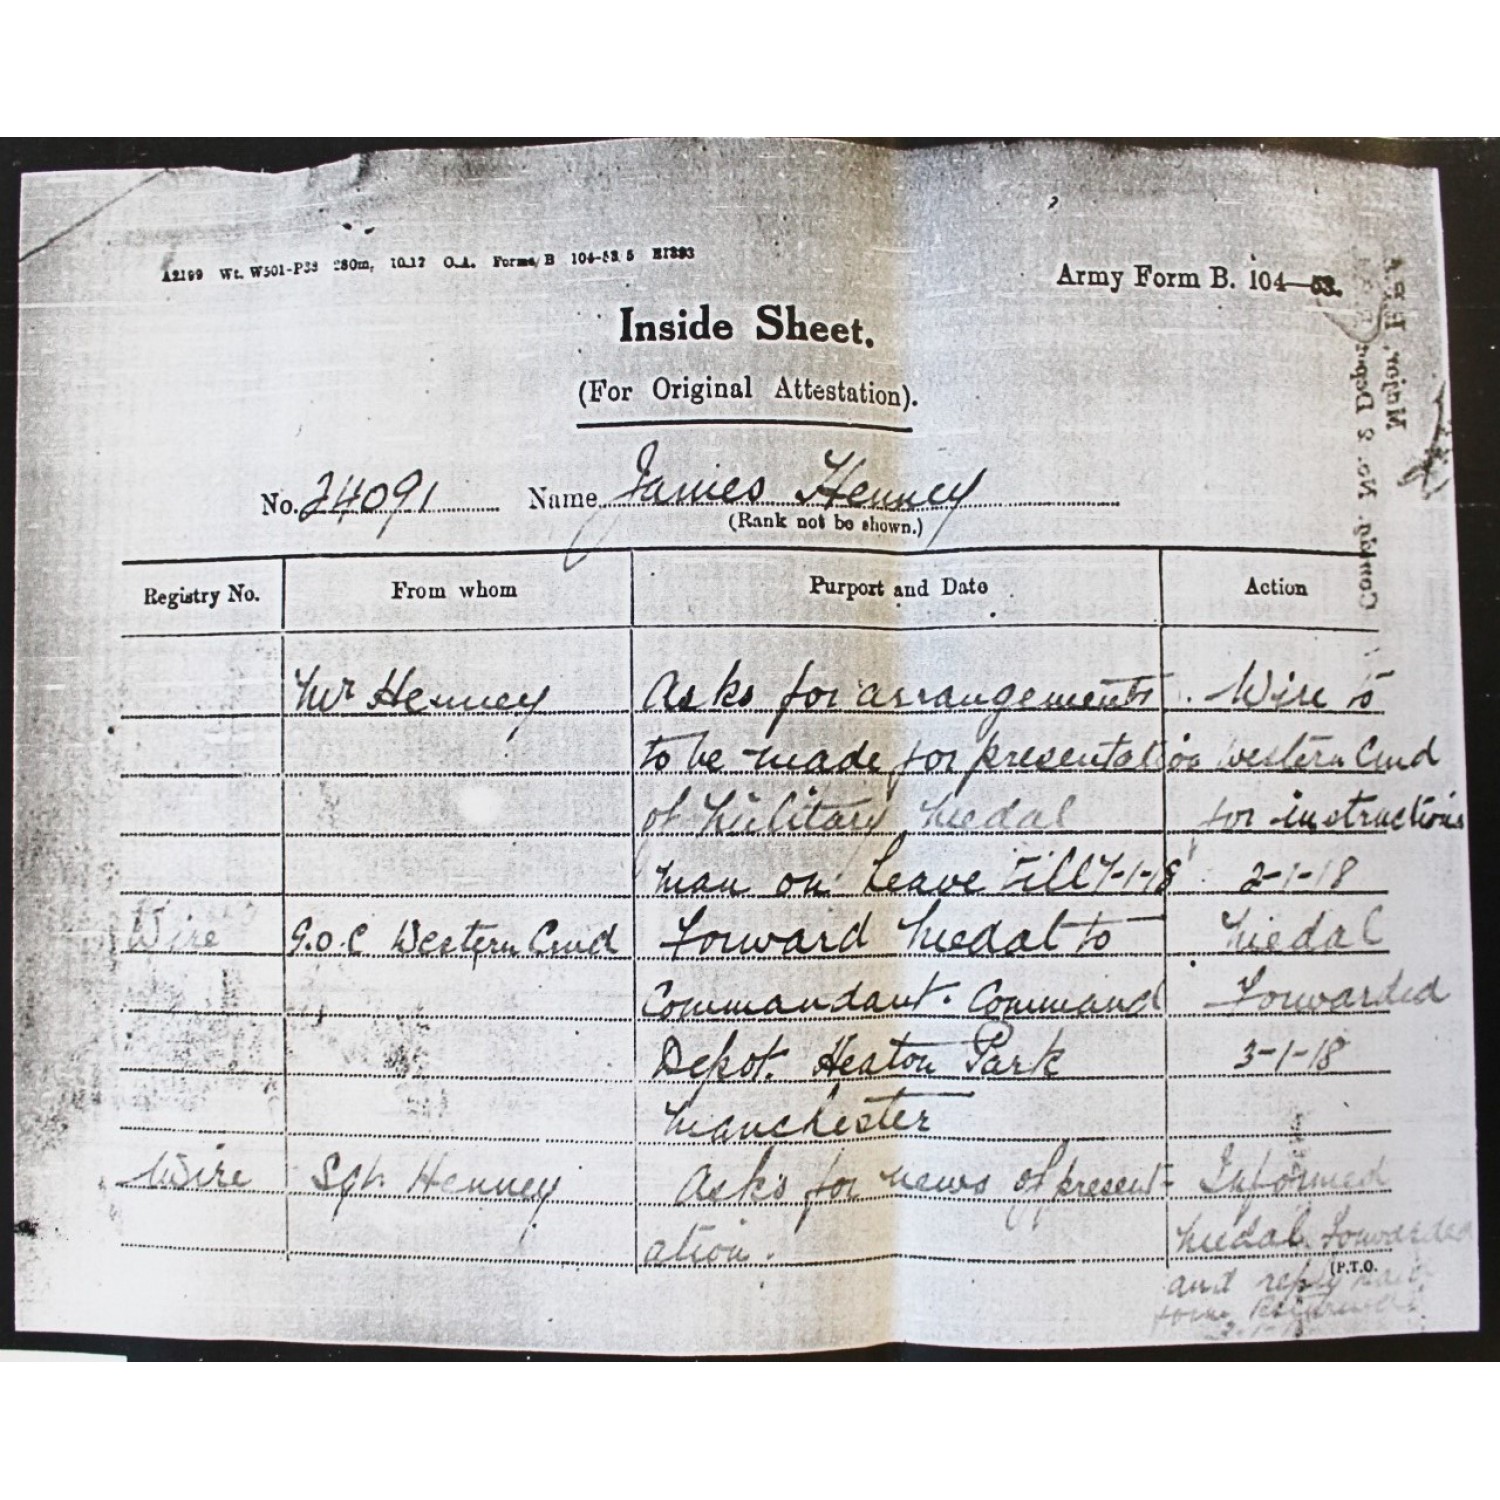 A2199 Wt. W501-P38 280m, 10.17 O.A. Forms/B 104-53/5 E1393
Army Form B. 104—53.
Inside Sheet.
(For Original Attestation).
No. 24091 Name James Henney
(Rank not be shown.)
Registry No. From whom Purport and Date Action
Mr Henney Asks for arrangements Wire to
to be made for presentation Western Cmd
of Military Medal for instructions
man on leave till 7-1-18 2-1-18
Wire G.O.C Western Cmd Forward Medal to Medal
Commandant. Command Forwarded
Depot. Heaton Park 3-1-18
Manchester
Wire Sgt. Henney Asks for news of present- Informed
ation. Medal Forwarded
(P.T.O.
and reply
Major,
Comdg. No. 8 Depot